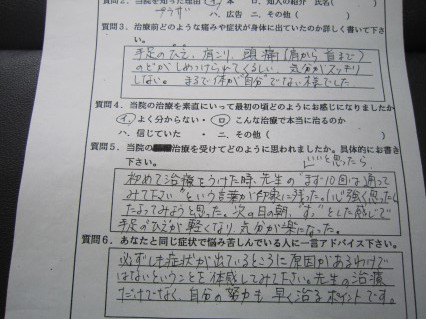 質問2. 当院を知った理由 イ. 本 ロ. 知人の紹介 氏名(
プラザ ハ. 広告 ニ. その他 (
質問3. 治療前どのような痛みや症状が身体に出ていたのか詳しく書いて下さい。
手足のひえ、肩こり、頭痛(肩から首まで)
のどがしめつけられてくるしい 気分がスッキリ
しない。まるで体が"自分"でない様でした
質問4. 当院の治療を素直にいって最初の頃どのようにお感じになりましたか
イ. よく分からない・ロ こんな治療で本当に治るのか
ハ. 信じていた ・ ニ. その他(
質問5. 当院の治療を受けてどのように思われましたか。具体的にお書き下さい。
いいと思ったら
初めて治療をうけた時、先生の"まず10回は通って
みて下さい"という言葉が印象に残った。心強く思ったし
たよってみようと思った。次の日の朝、"す〜"とした感じで
手足のひえが軽くなり、気分が楽になった。
質問6. あなたと同じ症状で悩み苦しんでいる人に一言アドバイス下さい。
必ずしも症状が出ているところに原因があるわけで
はないということを体感してみて下さい。先生の治療
だけでなく、自分の努力も早く治るポイントです。